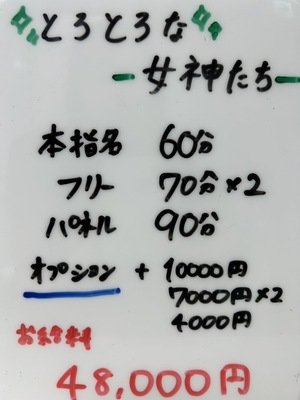 とろとろな
女神たち
本指名 60分
フリー 70分×2
パネル 90分
オプション + 10000円
7000円×2
4000円
お給料
48,000円